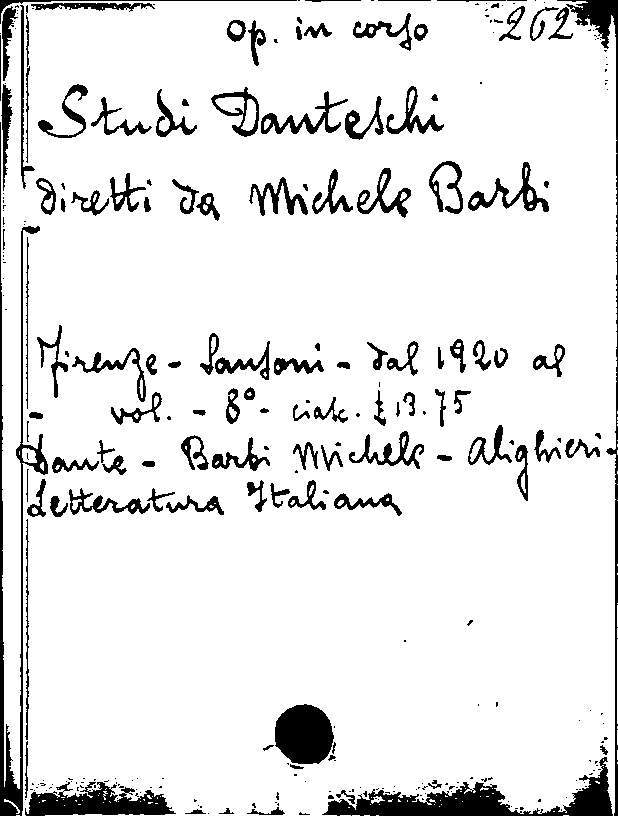 Op. in corso 262
Studi Danteschi
diretti da Michele Barbi
Firenze - Sansoni - dal 1920 al
- vol. - 8° - ciasc. £ 13.75
Dante - Barbi Michele - Alighieri -
Letteratura Italiana